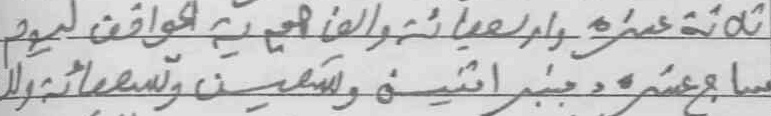 ثلاثة عشرة واربعمائة والف هجرية الموافق ليوم
سابع عشرة دجنبر اثنين وتسعين وتسعمائة وال